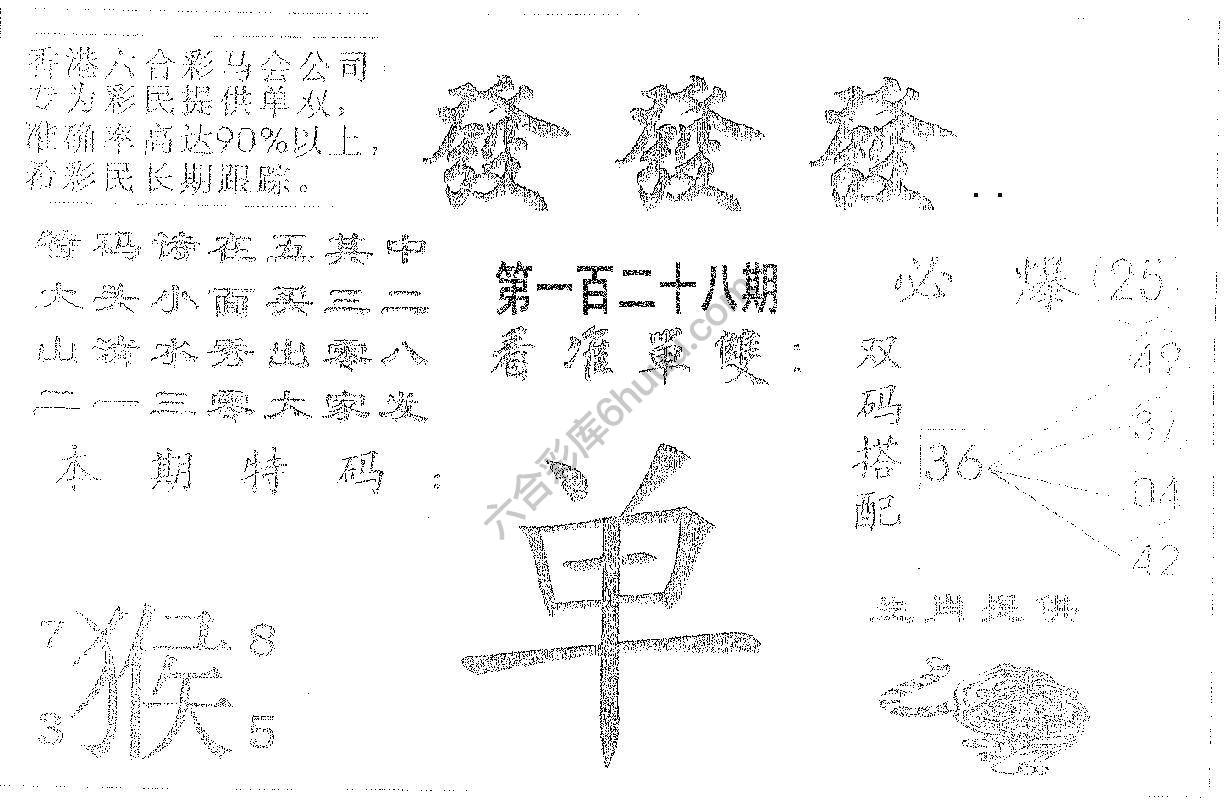 香港六合彩马会公司
专为彩民提供单双，
准确率高达90%以上，
希彩民长期跟踪。
發 發 發 . .
特码诗在五其中
大头小面买三二
山清水秀出零八
二一三零大家发
本期特码：
第一百二十八期
看准單雙：
单
必爆(25)
双码搭配
36
49
37
04
42
生肖提供
7 猴 8
3 5
六合彩库6huu.com